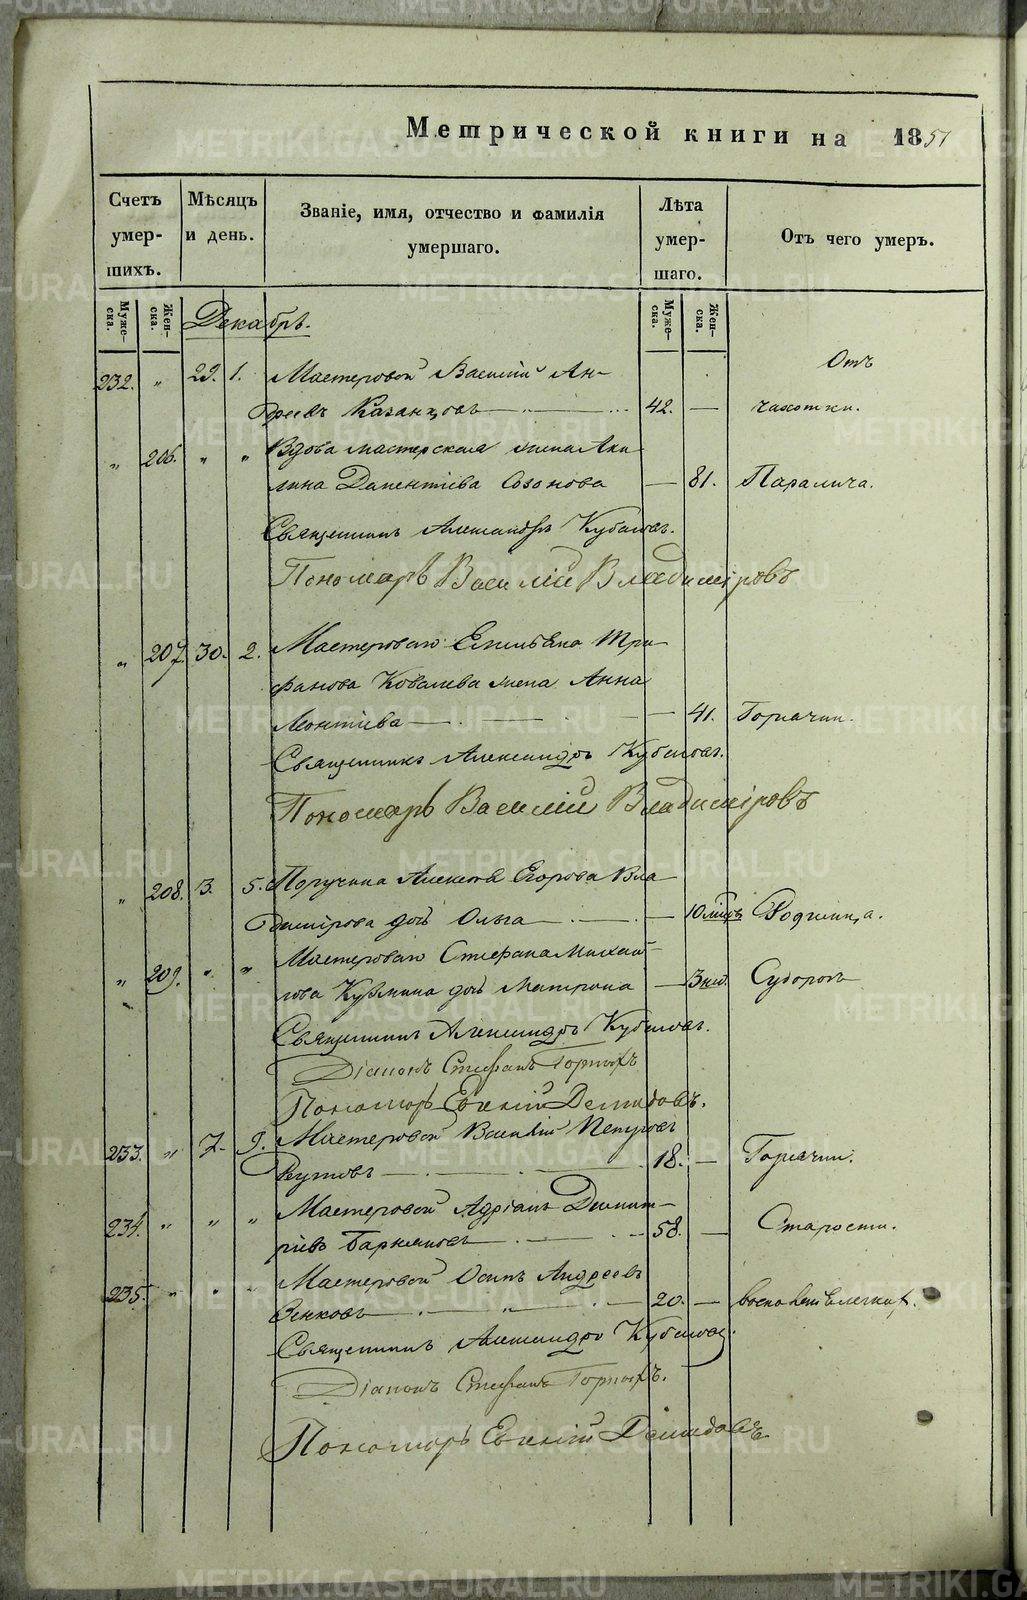 Метрической книги на 1851
Счетъ умер-шихъ.
Мѣсяцъ и день.
Званіе, имя, отчество и фамилія умершаго.
Лѣта умер-шаго.
Отъ чего умеръ.
Муже-ска.
Жен-ска.
Муже-ска.
Жен-ска.
Декабрь.
Отъ
232. " 29. 1. Мастеровой Василій Ан-
дреевъ Казанцовъ 42. — чахотки.
" 206. " " Вдова мастерская жена Аки-
лина Созонова — 81. Паралича.
Священникъ Александръ
Пономарь Василій Владиміровъ
" 207. 30. 2. Мастероваго Емельяна Три-
фанова Ковалева жена Анна
Леонтіева — 41. Горячки.
Священникъ Александръ
Пономарь Василій Владиміровъ
" 208. 3. 5. Поручика Алексѣя Егорова Вла-
димірова дочь Ольга — 10 мѣс. Родимца.
" 209. " " Мастероваго Стефана Михай-
лова Кузмина дочь Матрона — 3 нед. Судорог
Священникъ Александръ
Діаконъ Стефанъ Горныхъ
Пономарь Евгеній Демидовъ.
233. " 7. 9. Мастеровой Василій Петровъ
18. — Горячки.
234. " " " Мастеровой Адріанъ Дмит-
ріевъ 58. — Старости.
235. " " " Мастеровой Осипъ Андреевъ
Венковъ 20. —
Священникъ Александръ
Діаконъ Стефанъ Горныхъ.
Пономарь Евгеній Демидовъ.
METRIKI.GASO-URAL.RU